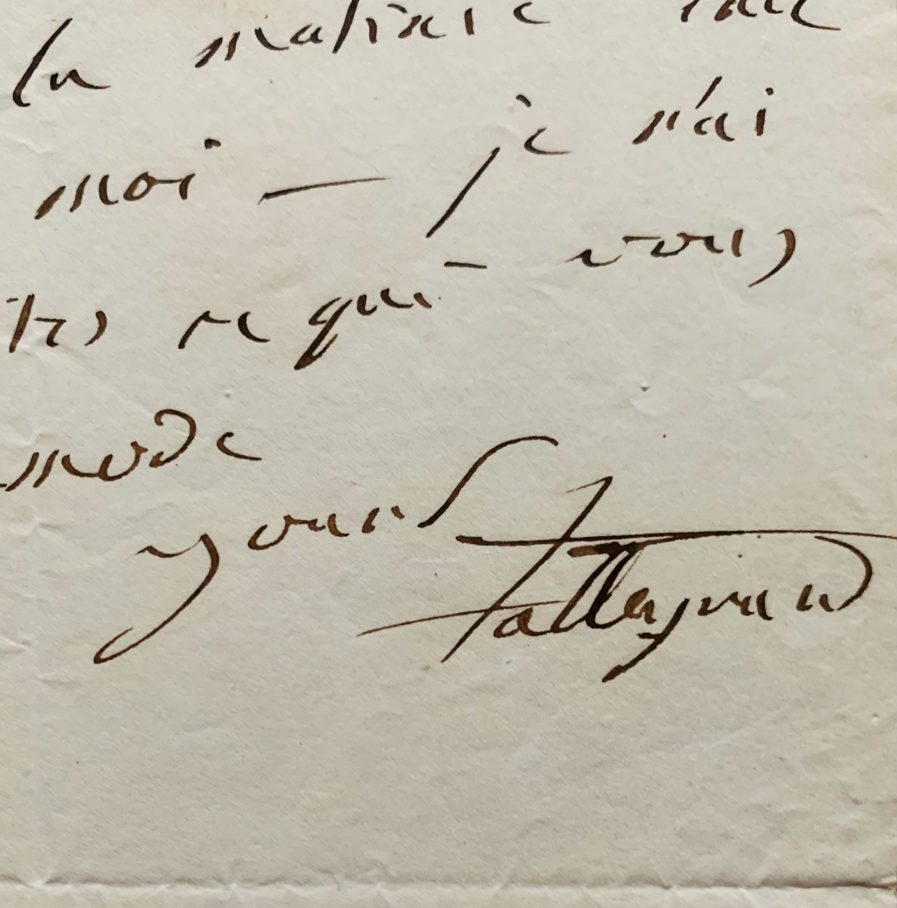 la matinée
moi — je n'ai
ce qui vous
mode
yours
Talleyrand